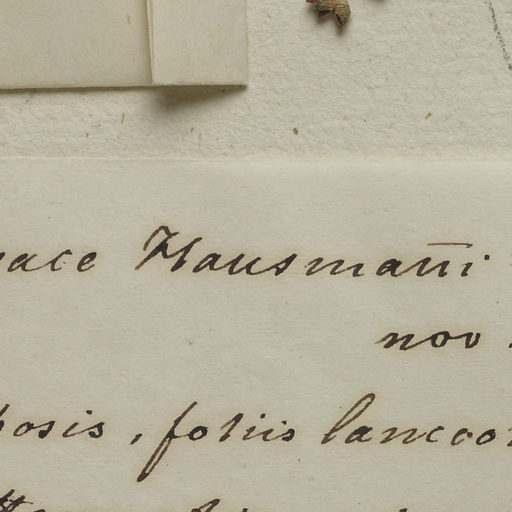 ace Hausmani
nov
osis, foliis lanceo